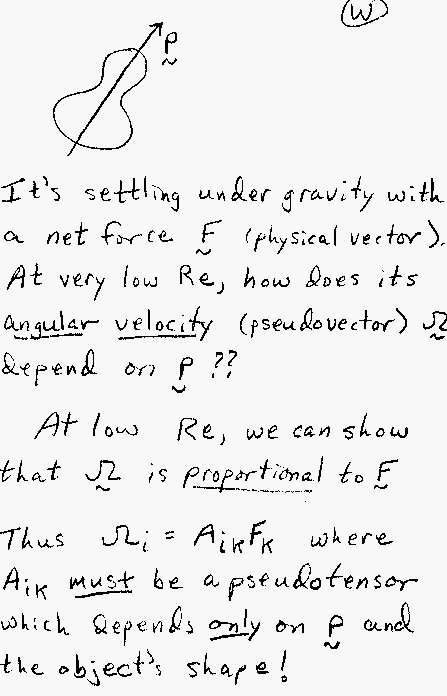 W
p
It's settling under gravity with
a net force F (physical vector).
At very low Re, how does its
angular velocity (pseudovector) Ω
depend on p ??
At low Re, we can show
that Ω is proportional to F
Thus Ωi = AikFk where
Aik must be a pseudotensor
which depends only on p and
the object's shape!